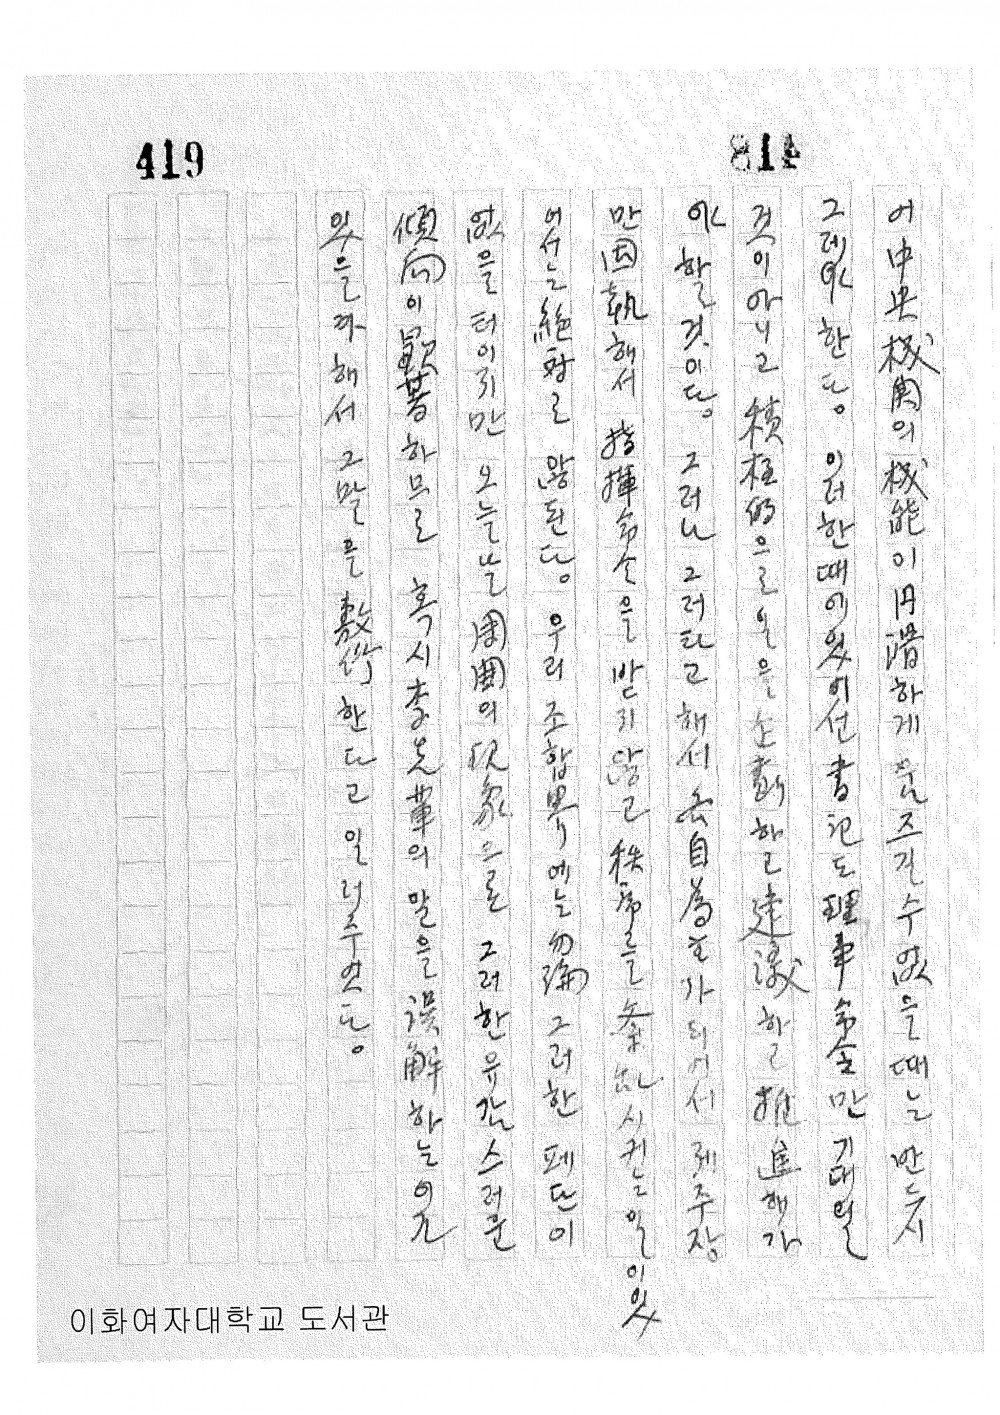 418
어 中央機関의 機能이 円滑하게 움즈길수없을때는 반드시
그레야 한다。 이러한때에있어선 書記도 理事 命令만 기대릴
것이아니고 積極的으로 일을 企劃하고 建議할고 推進해가
야 할것이다。 그러나 그러타고 해서 各自為主가 되어서 제주장
만固執해서 指揮命令을 받지않고 秩序를 紊乱시키는일이있
어서는 絶対로 않된다。 우리 조합界에는 勿論 그러한 페단이
없을 터이지만 오늘날 周囲의 現象으론 그러한유감스러운
傾向이 顕著하므로 혹시 李先輩의 말을 誤解하는이가
있을까해서 그말을 敷衍한다고 일러주었다。
419
이화여자대학교 도서관